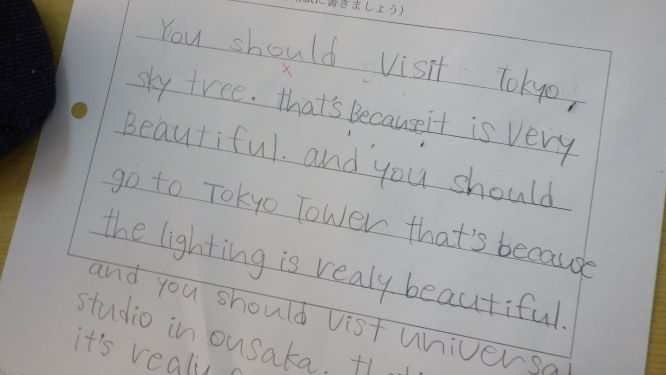 に書きましょう)
You should visit Tokyo,
sky tree. that's because it is very
Beautiful. and you should
go to Tokyo Tower that's because
the lighting is realy beautiful.
and you should vist universal
studio in ousaka.
it's realy